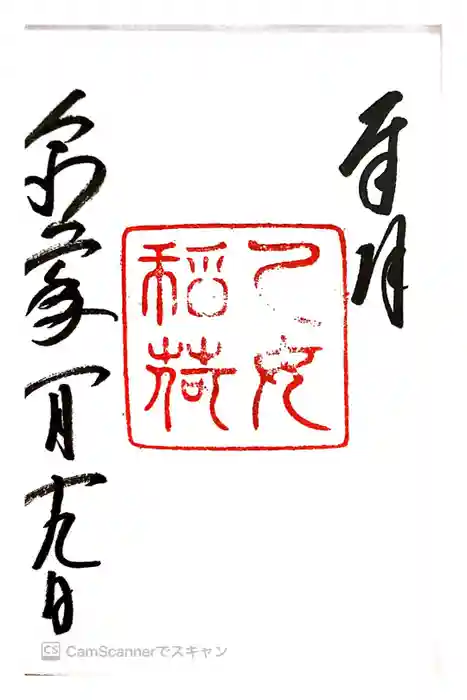 奉拝
乙女
稲荷
令和年一月十九日
CS CamScannerでスキャン